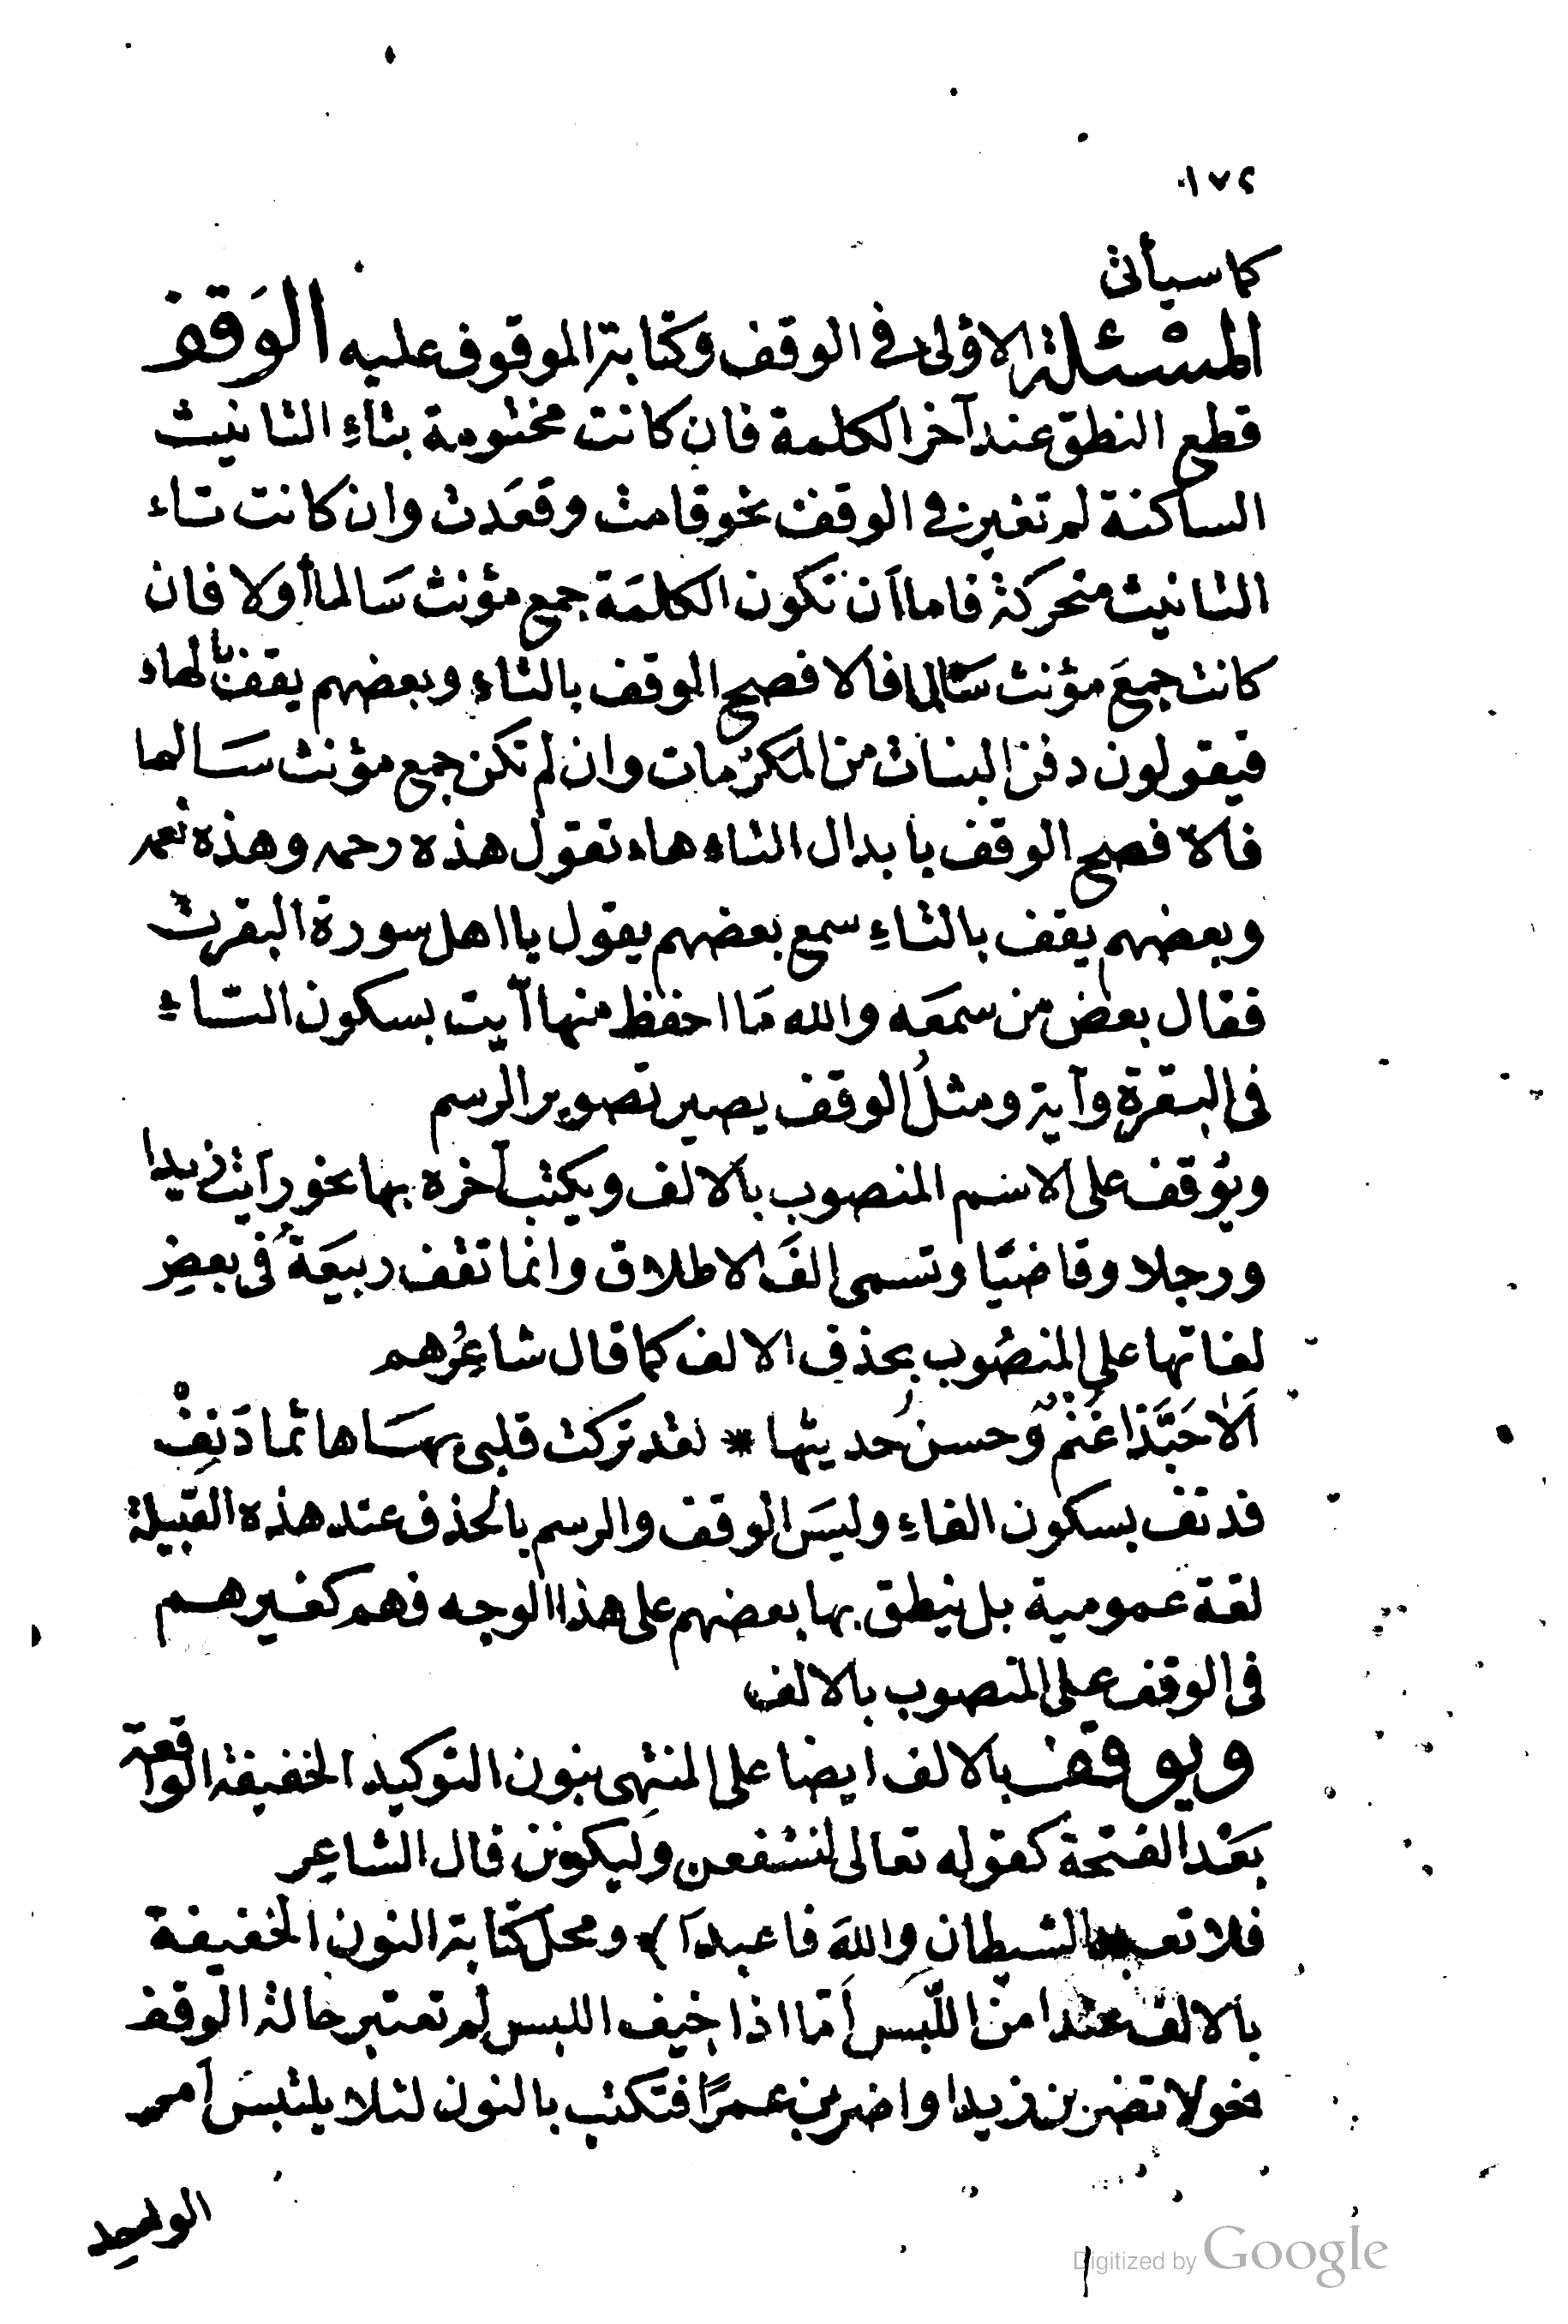 ١٧٢
كما سيأتى
المسئلة الاولى فى الوقف وكتابة الموقوف عليه الوَقف
قطع النطق عند آخر الكلمة فان كانت مختومة بتاءِ التانيث
الساكنة لم تغير فى الوقف نحو قامت وقعَدت وان كانت تاء
التانيث متحركة فاما اَن تكون الكلمَة جمع مؤنث سَالما أولا فان
كانت جمعَ مؤنث سَالما فالافصح الوقف بالتاءِ وبعضهم يقف بالهاء
فيقولون دفن البناه من المَكرمات وان لم تكن جمع مؤنث سَالما
فالافصح الوقف بابدال التاء هاء تقول هذه رحمه وهذه نعمه
وبعضهم يقف بالتاءِ سمع بعضهم يقول يا اهل سورة البقرت
فقال بعض من سمعَه والله مَا احفظ منها آيت بسكون التاءِ
فى البقرة وآية ومثلُ الوقف يصير تصوير الرسم
ويُوقف على الاسْم المنصوب بالالف ويكتب آخره بها نحو رايت زيدا
ورجلا وقاضيًا وتسمى الفَ الاطلاق وانما تقف ربيعَةُ فى بعض
لغاتها على المنصُوب بحذف الالف كما قال شاعِرُهم
اَلا حَبَّذا غَنْمٌ وَحسنُ حَديثها * لقد تركت قلبى بهَا هائما دَنِفْ
فدنف بسكون الفاءِ وليسَ الوقف والرسم بالحذف عند هذه القَبيلة
لغة عمومية بل ينطق بها بعضهم على هذا الوجه فهم كغيرهم
فى الوقف على المنصوب بالالف
ويوقف بالالف ايضا على المنتهى بنون التوكيد الخفيفة الواقعة
بَعْد الفتحة كقوله تعالى لنسفعن وليكونن قال الشاعِر
فلا تعبد الشيطان والله فاعبدَا * ومحل كتابة النون الخفيفة
بالالف عند امن اللّبس اَمّا اذا خيف اللبس لم تعتبر حالة الوقف
نحو لا تضربن زيدا واضربن عمرًا فتكتب بالنون لئلا يلتبسَ اَمر
الواحد
Digitized by Google